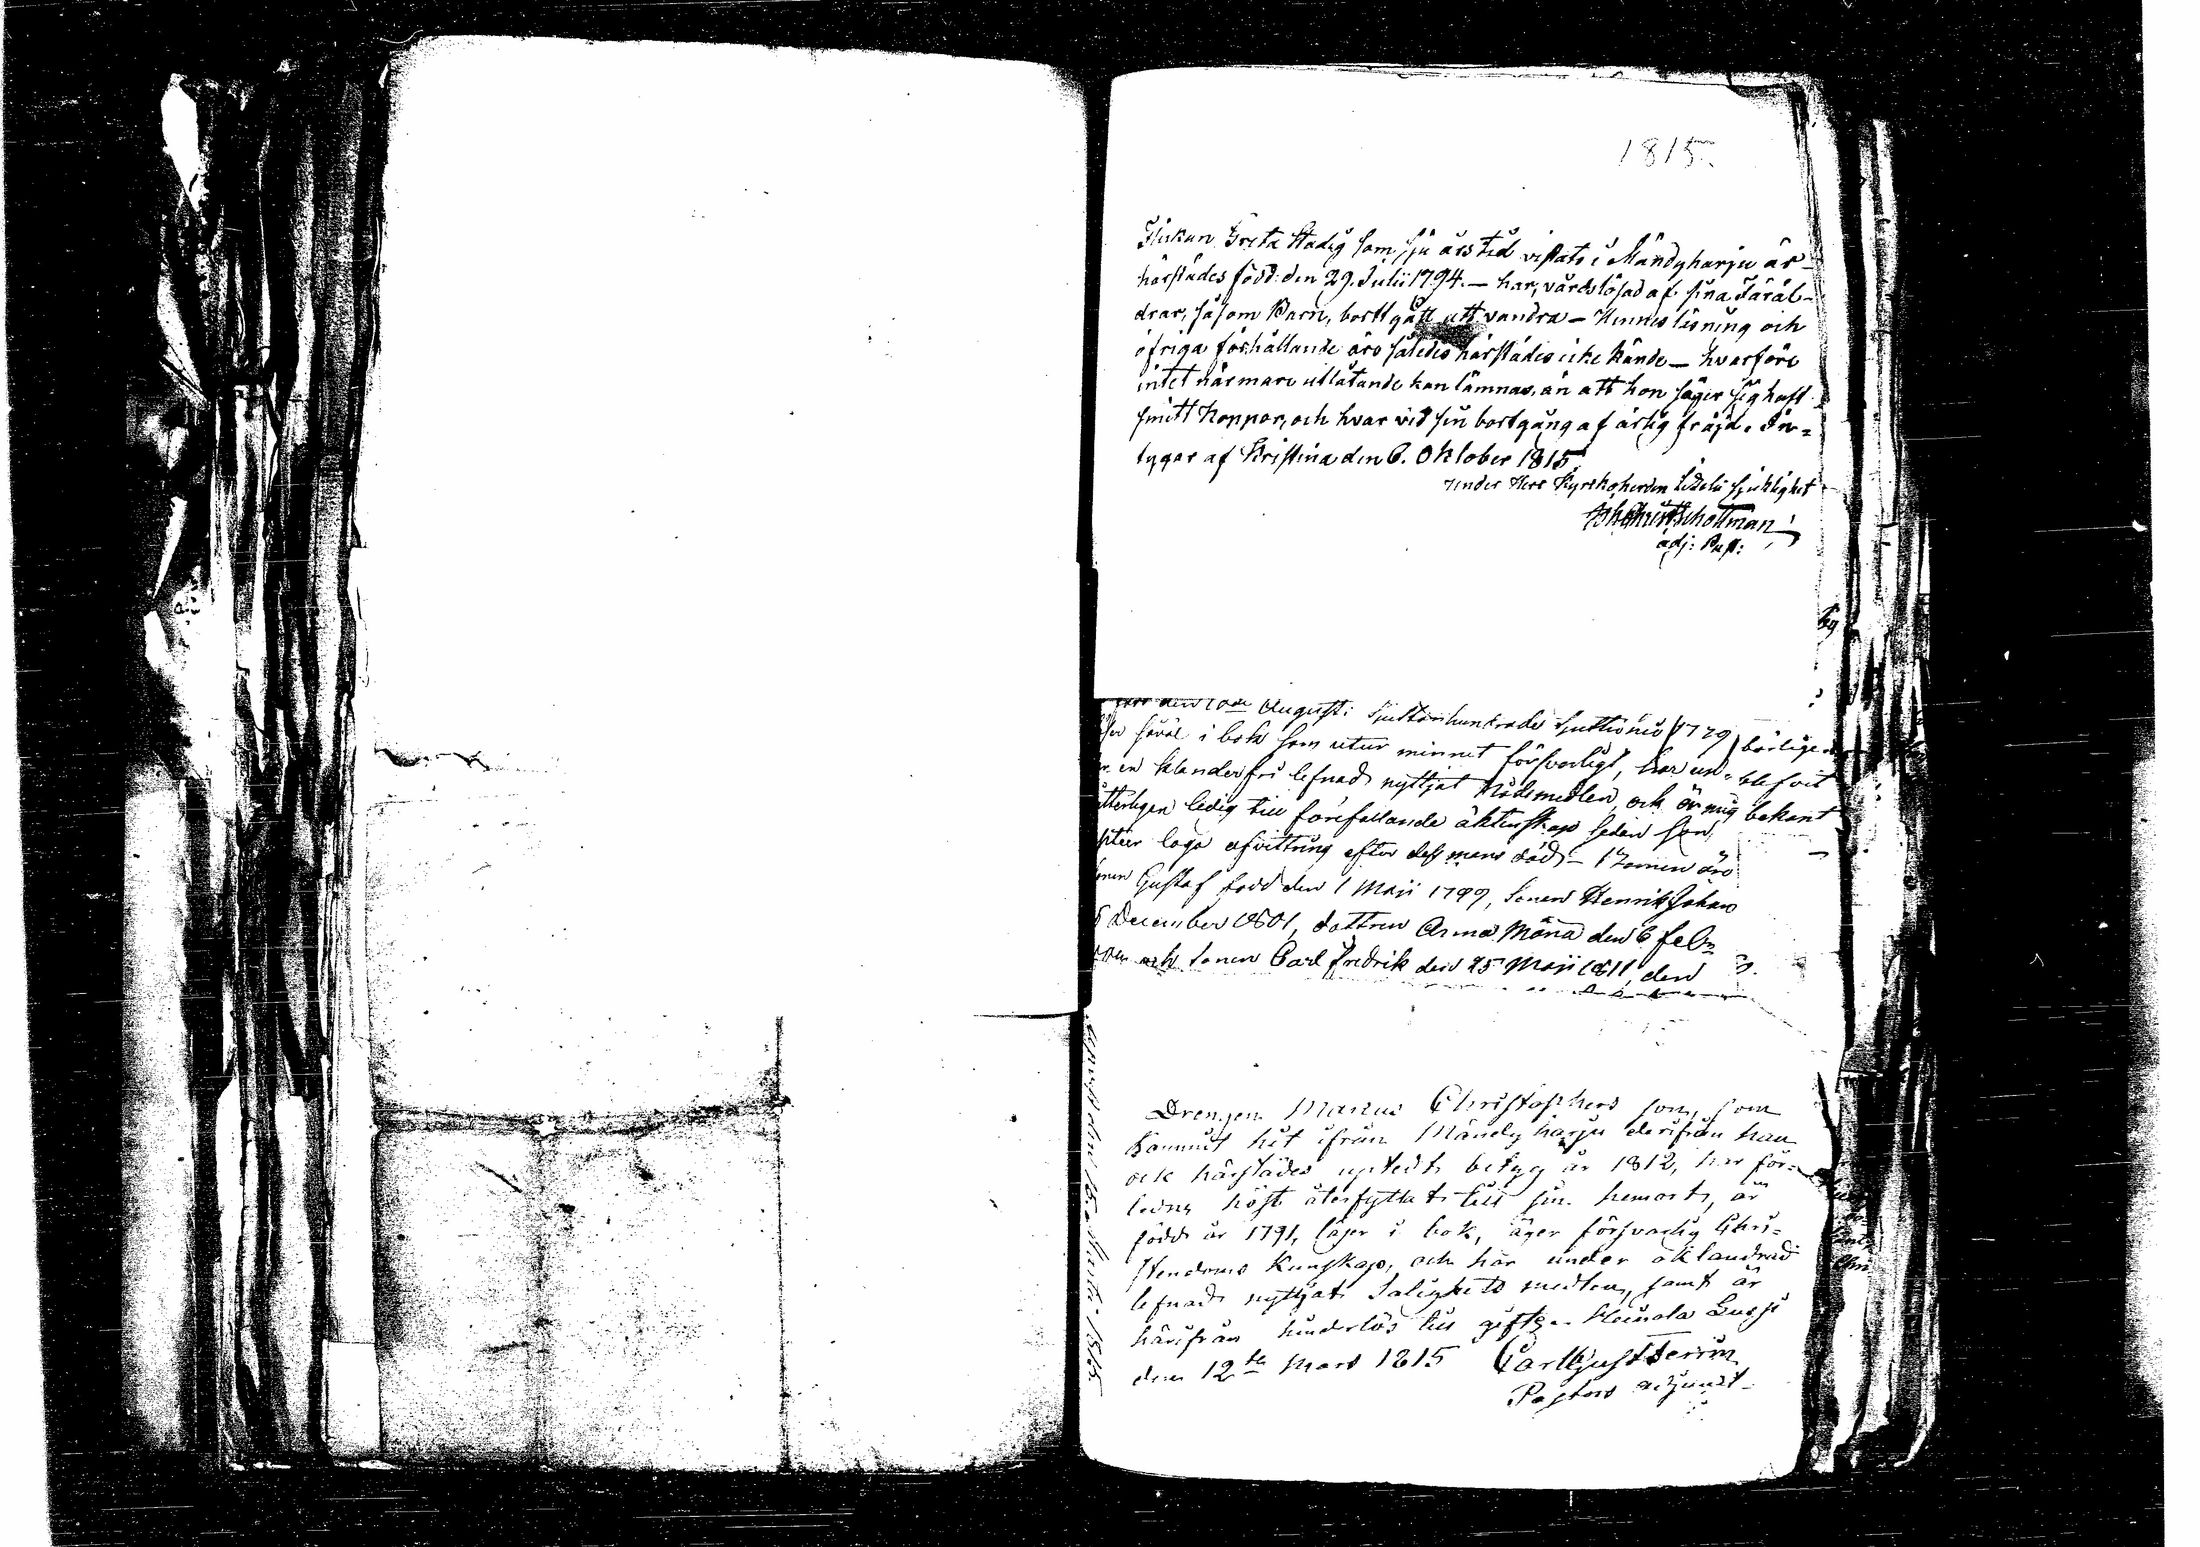 1815.
Flickan Greta Stadig som sju års tid vistats i Mändyharju är
härstädes född den 29. Julii 1794. — har, vårdslösad af sina Föräl-
drar, såsom Barn, bortgått att vandra — Hennes läsning och
öfriga förhållande äro således härstädes icke kände — hvarföre
intet närmare utlåtande kan lämnas, än att hon säger sig haft
smitt Koppor, och hvar vid sin bortgång af ärlig fräjd. In-
tygar af Kristina den 6. Oktober 1815
under Herr Kyrkoherden sjuklighet
Schottman
adj: Past:
den 10de Augusti Sjuttonhundrade Sjuttionio (1779) börlige
såväl i bok som utur minnet försvarligt, har un- blefvit
en klanderfri lefnad nyttjat Nådemedlen, och är mig bekant
ytterligen ledig till förefallande äktenskap sedan hon
laga afvittring efter dess mans död —
Gustaf född den 1 Maji 1799, Sonen Henrik Johan
December 1801, dottren Anna Maria den 6 feb-
och sonen Carl Fredrik den 25 Maji 1811, den
Drengen Marcus Christophers son, som
kommit hit ifrån Mändyharju derifrån han
ock härstädes uptedt betyg år 1812, har för-
ledne höst återflyttat till sin hemort, är
född år 1791, läser i bok, äger försvarlig Chri-
stendoms Kunskap, och har under oklandrad
lefnad nyttjat Salighets medlen, samt är
härifrån hinderlös till gifte. Heinola Sorge
den 12te Mars 1815 Carl Gust
Pastors adjunct
1815